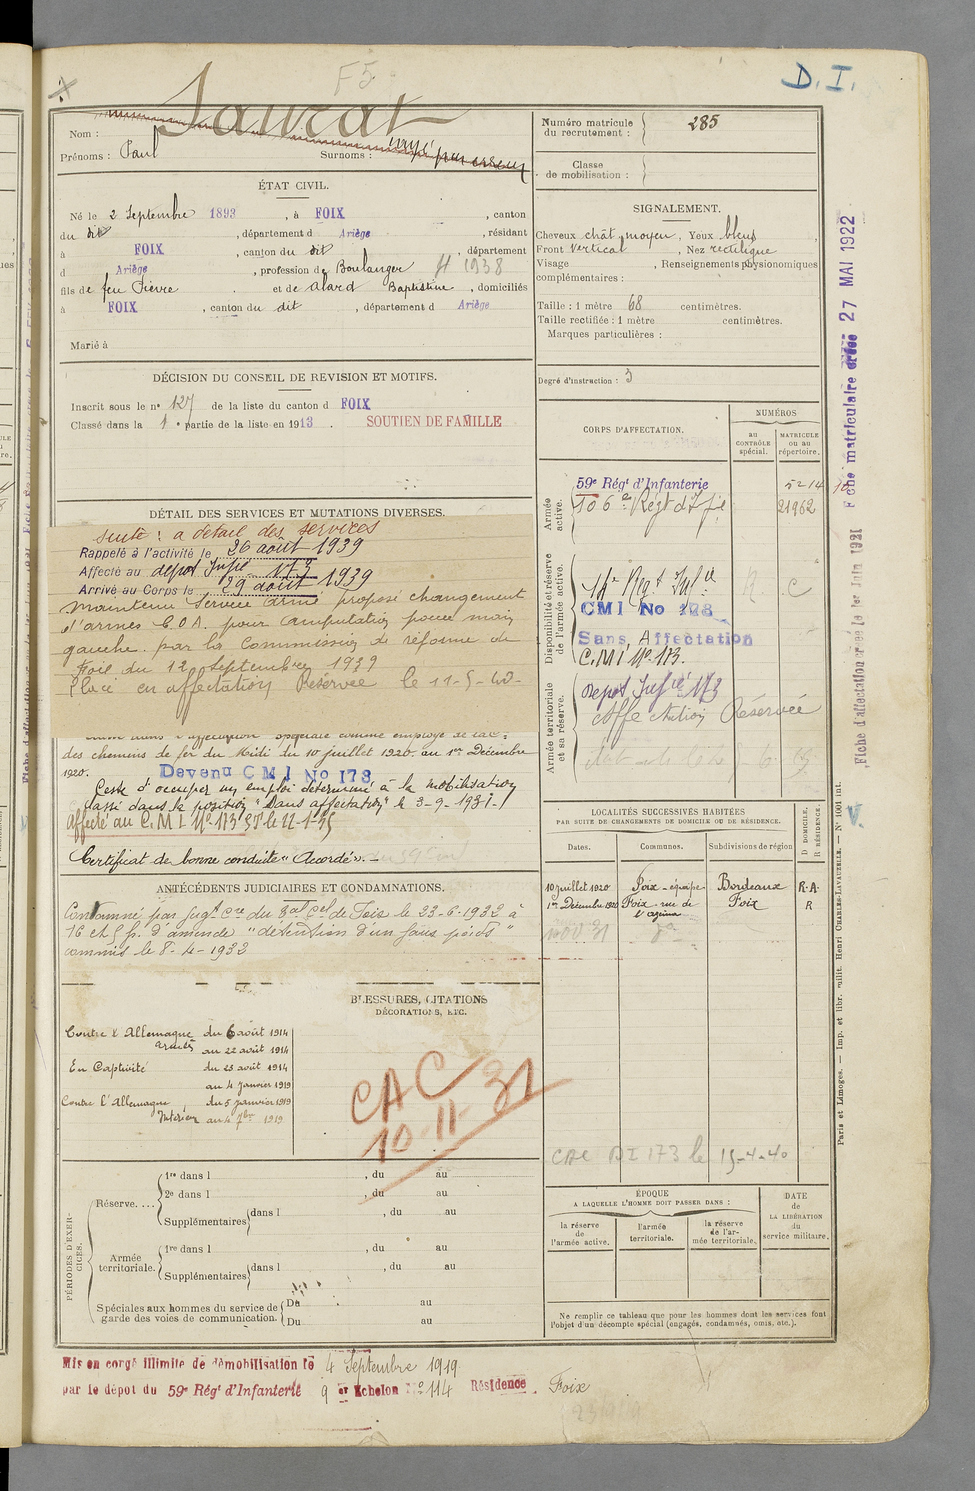 F5
D. I.
Nom : Laurat
Prénoms : Paul Surnoms : rayé par erreur
Numéro matricule du recrutement : 285
Classe de mobilisation :
ÉTAT CIVIL.
Né le 2 Septembre 1893, à FOIX, canton
du dit, département d Ariège, résidant
à FOIX, canton du dit, département
d Ariège, profession de Boulanger H 1938
fils de feu Pierre et de Alard Baptistine, domiciliés
à FOIX, canton du dit, département d Ariège
Marié à
SIGNALEMENT.
Cheveux chât moyen, Yeux bleus,
Front vertical, Nez rectiligne
Visage , Renseignements physionomiques
complémentaires :
Taille : 1 mètre 68 centimètres.
Taille rectifiée : 1 mètre centimètres.
Marques particulières :
Degré d'instruction : 3
DÉCISION DU CONSEIL DE REVISION ET MOTIFS.
Inscrit sous le no 127 de la liste du canton d FOIX
Classé dans la 1e partie de la liste en 1913. SOUTIEN DE FAMILLE
DÉTAIL DES SERVICES ET MUTATIONS DIVERSES.
suite : a détail des services
Rappelé à l'activité le 26 août 1939
Affecté au dépot Infie 173
Arrivé au Corps le 29 août 1939
maintenu Service armé proposé changement
d'armes C.O.A. pour amputation pouce main
gauche par la Commission de réforme de
Foix du 12 septembre 1939
Placé en affectation Réservée le 11-5-40-
des chemins de fer du Midi du 10 juillet 1920 au 1er Décembre
1920.
Devenu CMI No 173
Cesse d'occuper un emploi déterminé à la mobilisation
passé dans la position "Sans affectation" le 3-9-1931-/
Affecté au C.M.I No 173 le 22-1-35
Certificat de bonne conduite "Accordé".
ANTÉCÉDENTS JUDICIAIRES ET CONDAMNATIONS.
Condamné par jugt cre du Bal Cel de Foix le 23-6-1932 à
16 et 5 f. d'amende "détention d'un faux poids"
commis le 8-4-1932
BLESSURES, CITATIONS
DÉCORATIONS, ETC.
Contre l'Allemagne du 6 août 1914
armées au 22 août 1914
En Captivité du 23 août 1914
au 4 janvier 1919
Contre l'Allemagne du 5 janvier 1919
Intérieur au 4 7bre 1919
CAC
10-11-31
PÉRIODES D'EXERCICES.
Réserve.... 1re dans l , du au
2e dans l , du au
Supplémentaires dans l , du au
Armée territoriale. 1re dans l , du au
Supplémentaires dans l , du au
Spéciales aux hommes du service de garde des voies de communication. Du au
Du au
CORPS D'AFFECTATION.
NUMÉROS
au contrôle spécial.
MATRICULE ou au répertoire.
Armée active.
59e Régt d'Infanterie 5214
106e Régt d'Infie 21962
Disponibilité et réserve de l'armée active.
CMI No 128
Sans Affectation
C.M.I No 173.
Armée territoriale et sa réserve.
Depot Infie 173
Affectation Réservée
LOCALITÉS SUCCESSIVES HABITÉES
PAR SUITE DE CHANGEMENTS DE DOMICILE OU DE RÉSIDENCE.
Dates. Communes. Subdivisions de région
D DOMICILE. R RÉSIDENCE.
10 juillet 1920 Foix - équipe Bordeaux R.A.
1er Décembre 1920 Foix - rue de Foix R
nov 31
CAC 173 le 15-4-40
ÉPOQUE
A LAQUELLE L'HOMME DOIT PASSER DANS :
la réserve de l'armée active.
l'armée territoriale.
la réserve de l'armée territoriale.
DATE de LA LIBÉRATION du service militaire.
Ne remplir ce tableau que pour les hommes dont les services font
l'objet d'un décompte spécial (engagés, condamnés, omis, etc.).
Mis en congé illimité de démobilisation le 4 Septembre 1919.
par le dépôt du 59e Régt d'Infanterie 9 er Echelon No 114 Résidence. Foix
Fiche matriculaire créée 27 MAI 1922
Fiche d'affectation créée le 1er Juin 1931
Paris et Limoges. — Imp. et libr. milit. Henri CHARLES-LAVAUZELLE. — No 1001 int.